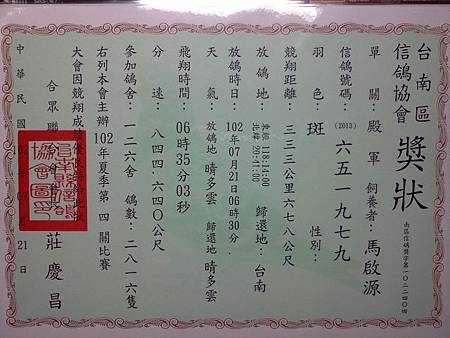 台南區
信鴿協會
獎狀
南區信鴿獎字第一〇二二四〇四
單關:殿軍 飼養者:馬啟源
信鴿號碼:(2013) 六五一九七九
羽色:斑 性別:
競翔距離:三三三公里六七八公尺
放鴿地:東經 118:14:00 北緯 20:41:00 歸還地:台南
放鴿日時:102年07月21日06時30分.
天氣:放鴿地 晴多雲 歸還地 晴多雲
飛翔時間:06時35分03秒
分速:八四四 六四〇公尺
參加鴿舍:一二六舍 鴿數:二八一六隻
右列本會主辦 102年夏季第 四 關比賽
大會因競翔成績優良
合眾聯 莊慶昌
中華民國 102年 21日